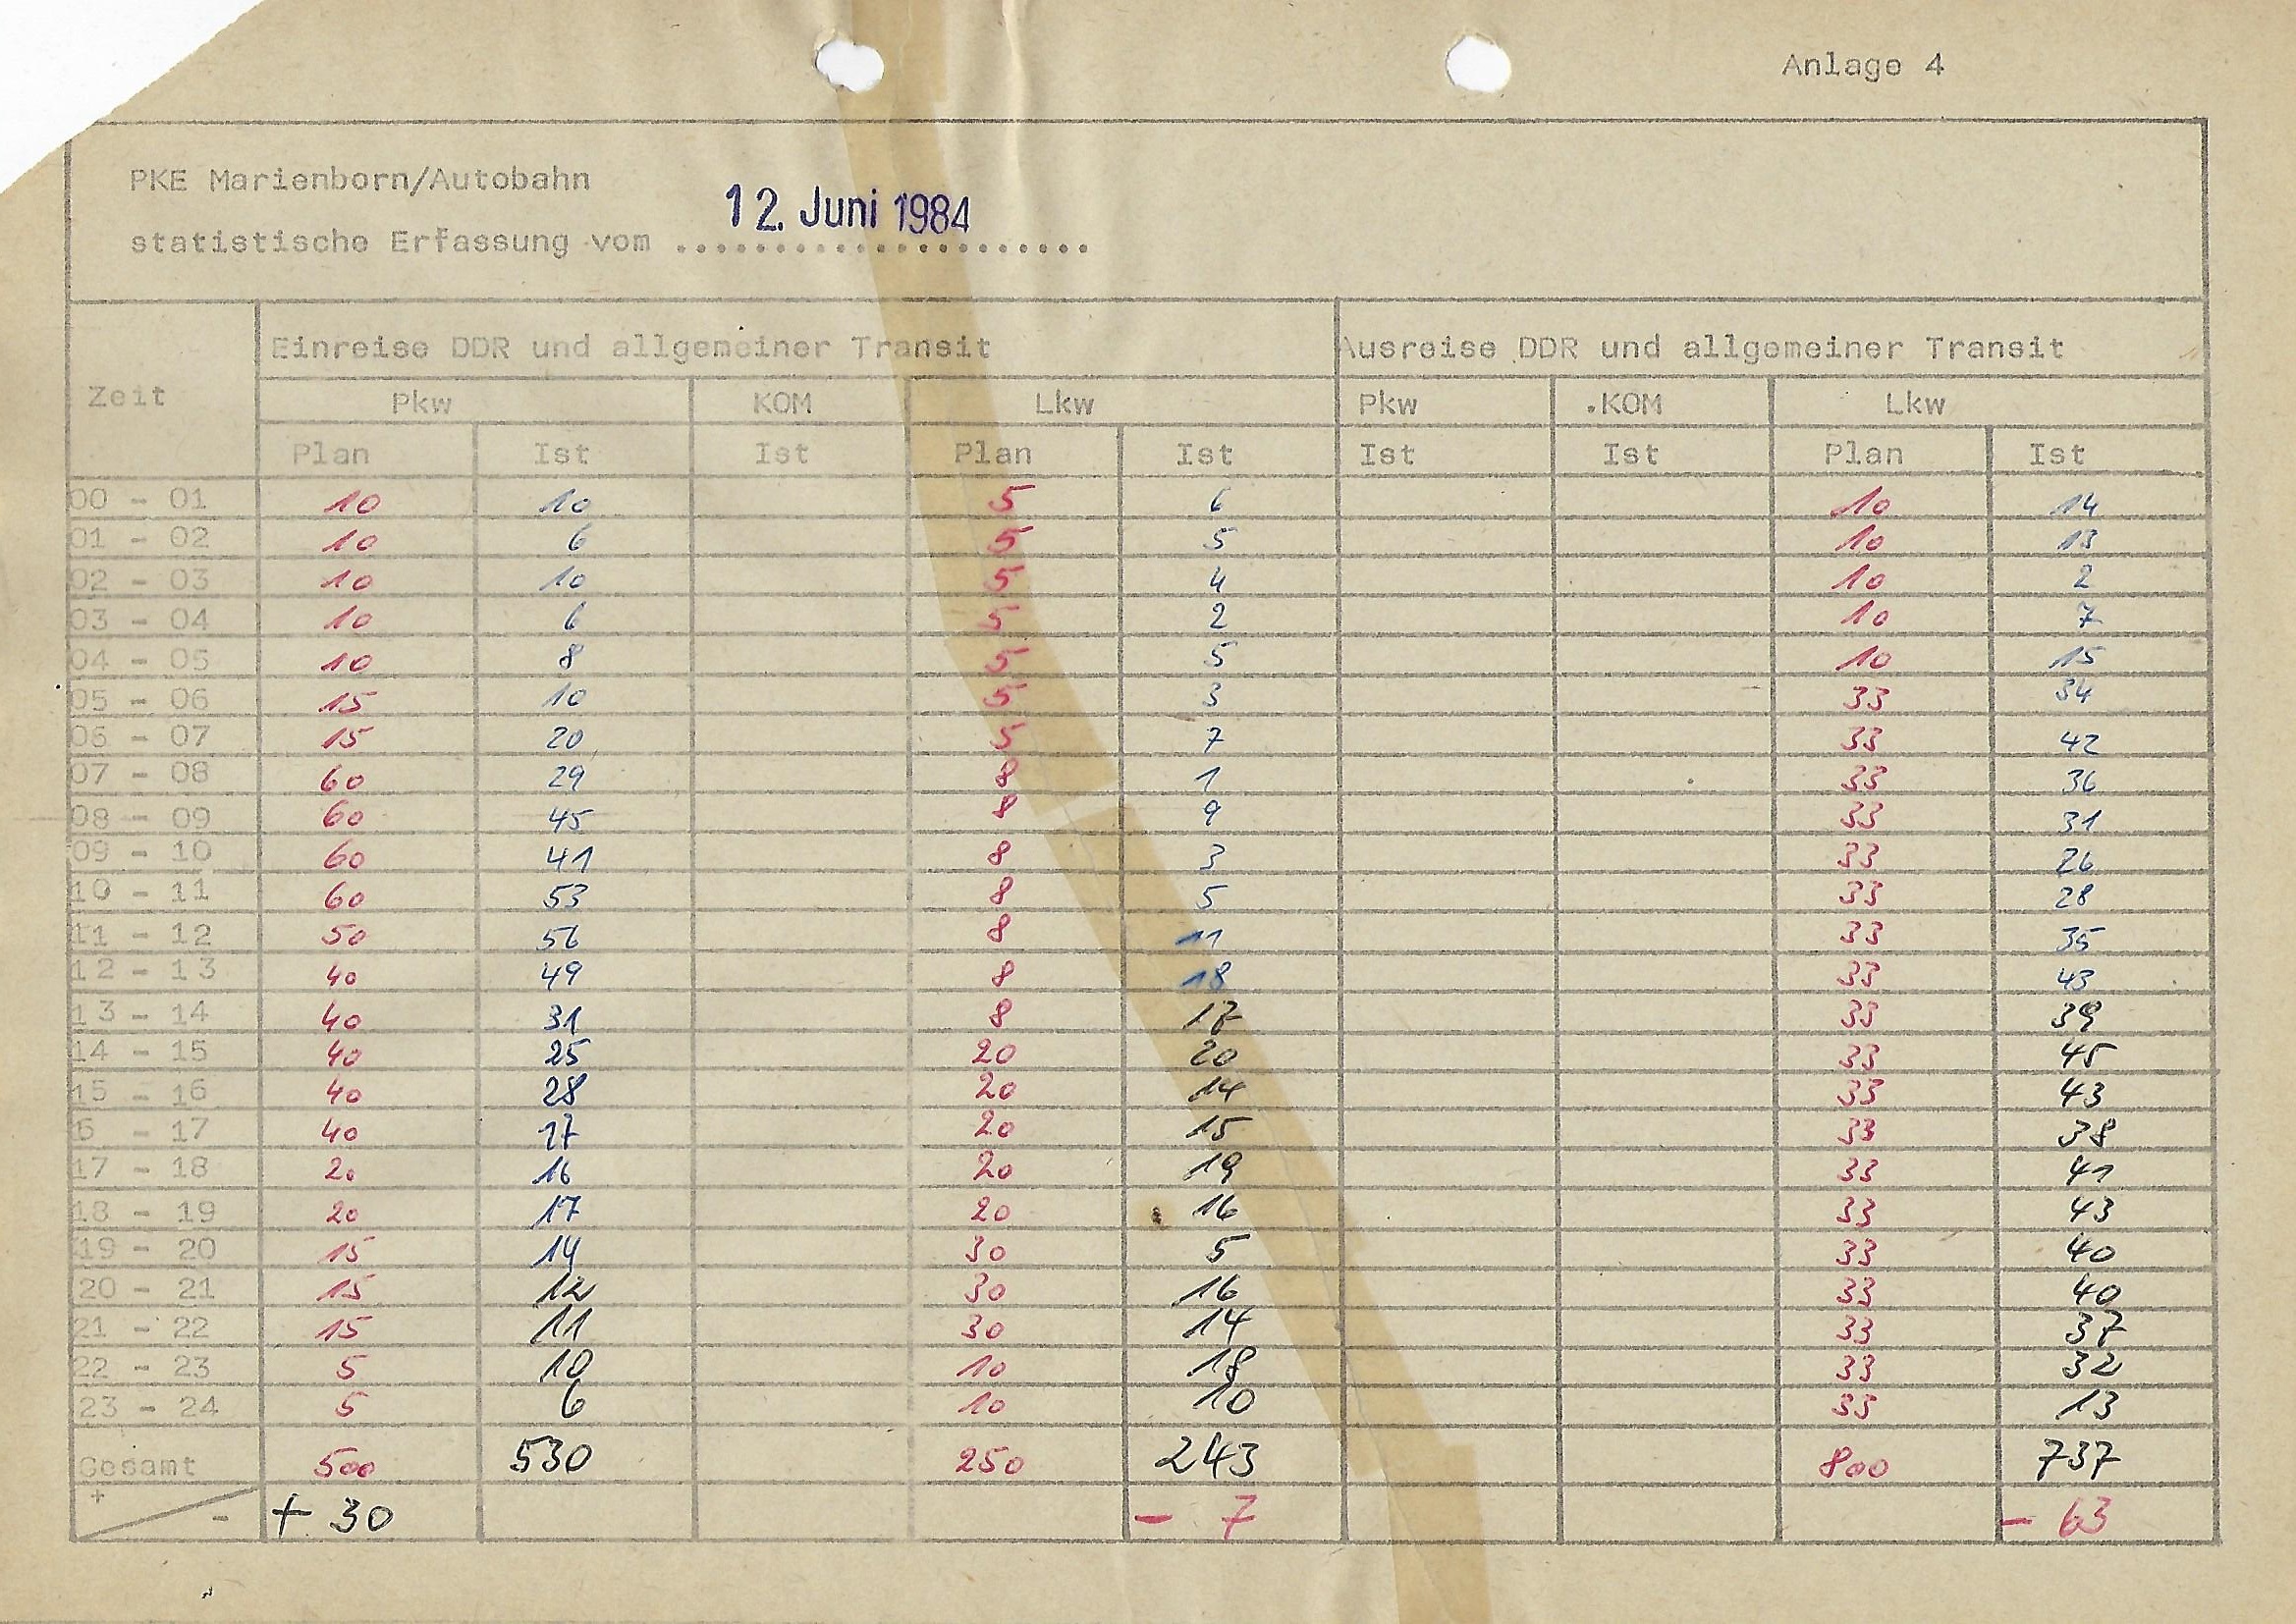 Anlage 4
PKE Marienborn/Autobahn
12. Juni 1984
statistische Erfassung vom ......................
Zeit Einreise DDR und allgemeiner Transit Ausreise DDR und allgemeiner Transit
Pkw KOM Lkw Pkw .KOM Lkw
Plan Ist Ist Plan Ist Ist Ist Plan Ist
00 - 01 10 10 5 6 10 14
01 - 02 10 6 5 5 10 13
02 - 03 10 10 5 4 10 2
03 - 04 10 6 5 2 10 7
04 - 05 10 8 5 5 10 15
05 - 06 15 10 5 3 33 34
06 - 07 15 20 5 7 33 42
07 - 08 60 29 8 1 33 36
08 - 09 60 45 8 9 33 31
09 - 10 60 41 8 3 33 26
10 - 11 60 53 8 5 33 28
11 - 12 50 56 8 11 33 35
12 - 13 40 49 8 18 33 43
13 - 14 40 31 8 17 33 39
14 - 15 40 25 20 20 33 45
15 - 16 40 28 20 14 33 43
6 - 17 40 17 20 15 33 38
17 - 18 20 16 20 19 33 41
18 - 19 20 17 20 16 33 43
19 - 20 15 14 30 5 33 40
20 - 21 15 12 30 16 33 40
21 - 22 15 11 30 14 33 37
22 - 23 5 10 10 18 33 32
23 - 24 5 6 10 10 33 13
Gesamt 500 530 250 243 800 737
+ - + 30 - 7 - 63